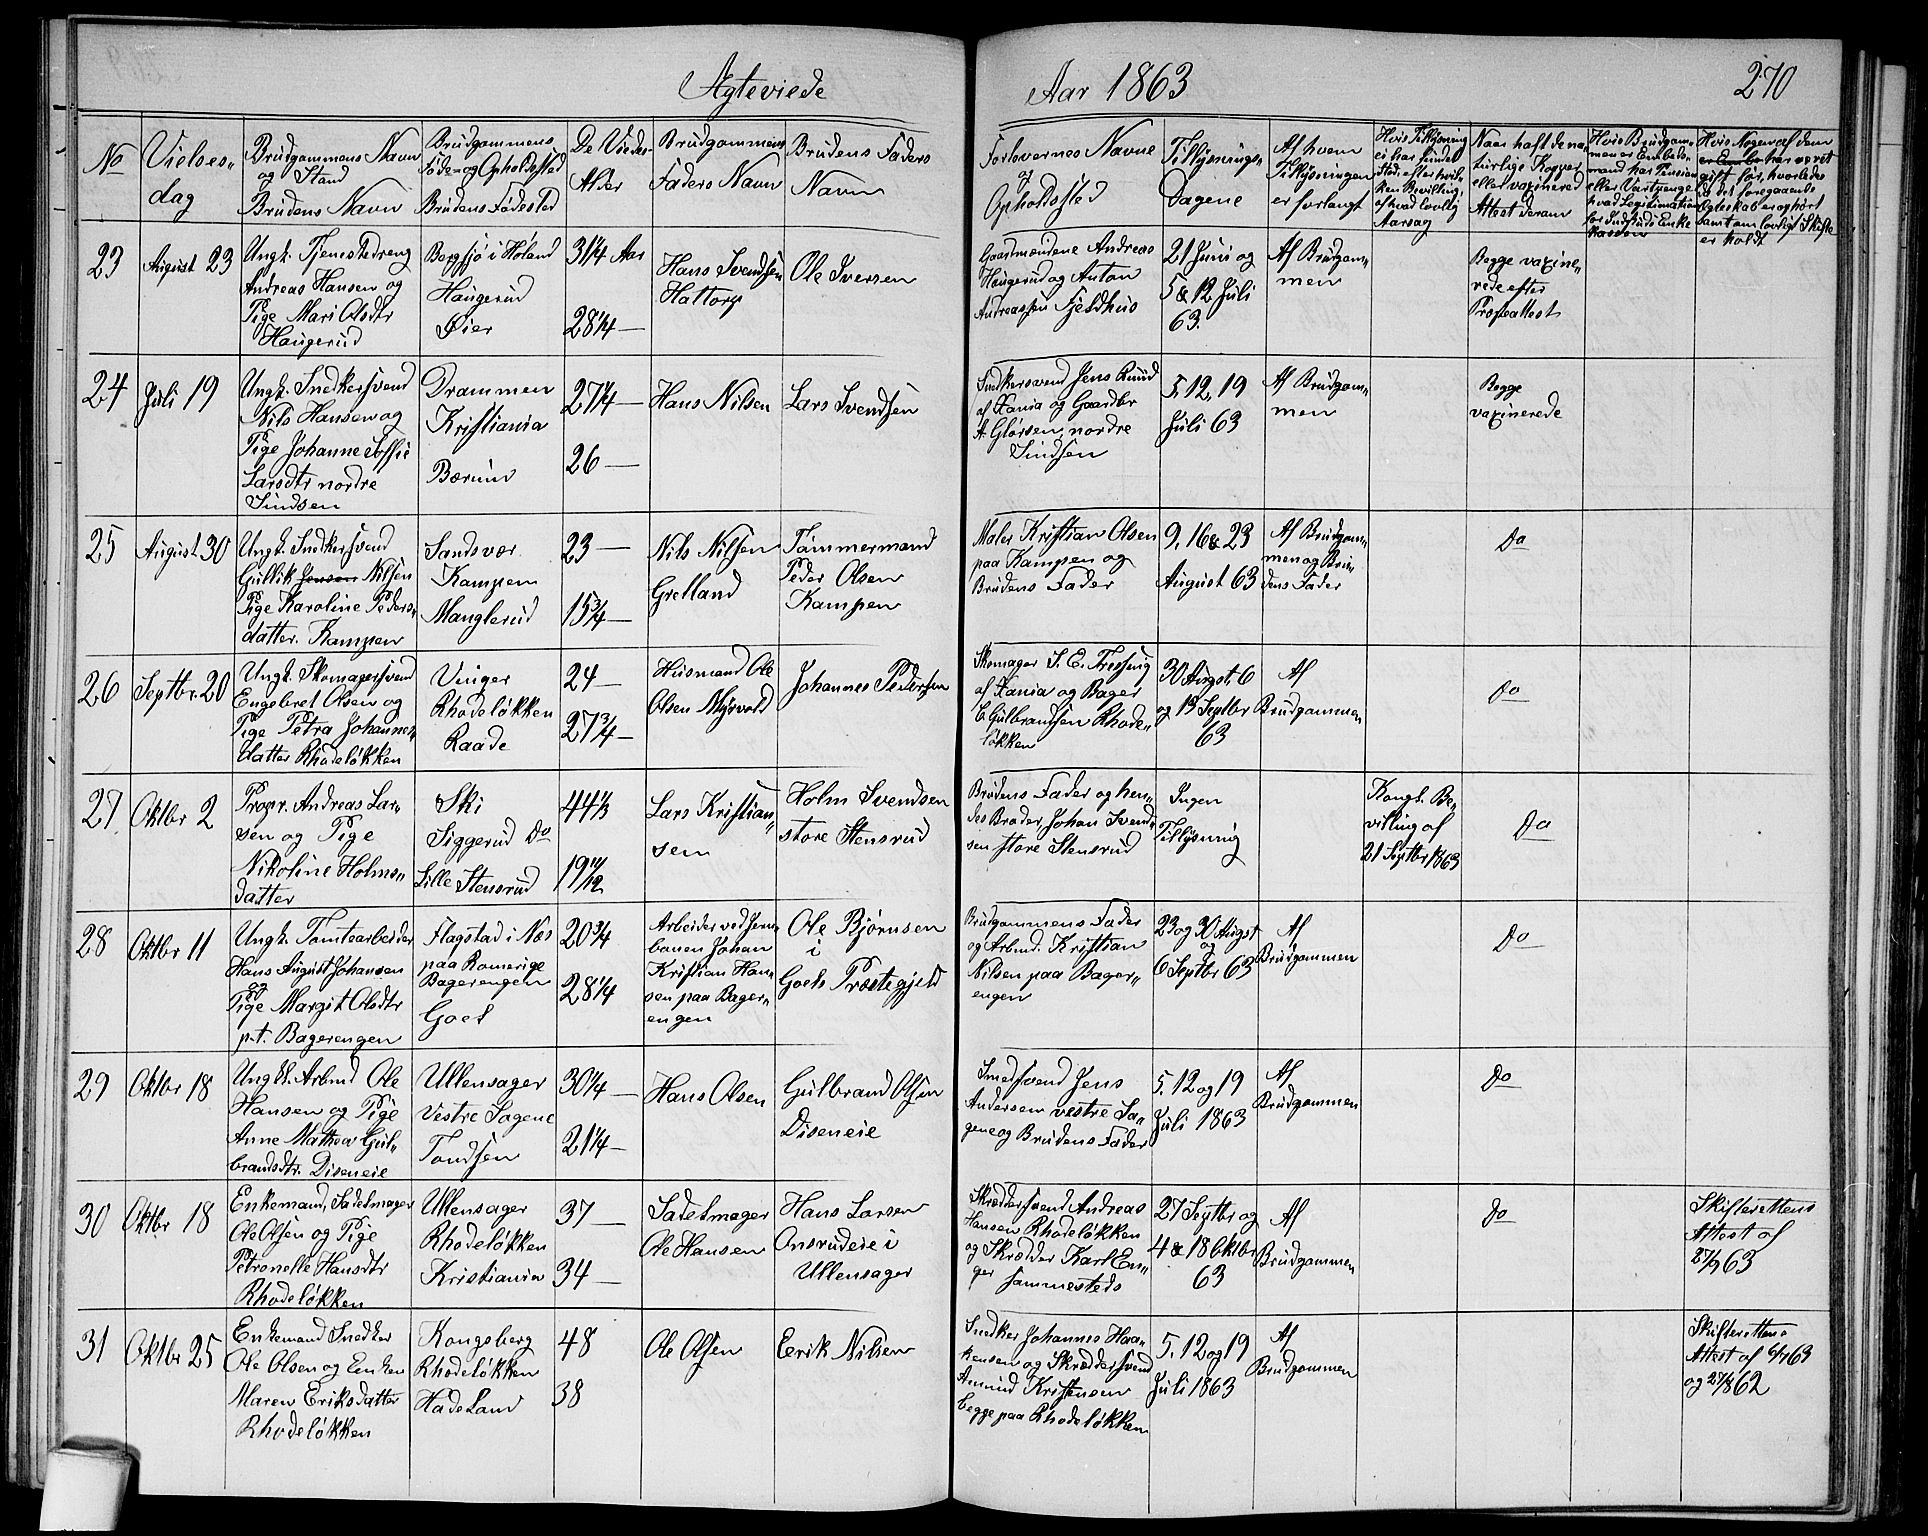 Ægteviede
Aar 1863
270
No
Vielses-
dag
Brudgommens Navn
og Stand
Brudens Navn
Brudgommens
Føde- og Opholdssted
Brudens Fødested
De Viedes
Alder
Brudgommens
Faders Navn
Brudens Faders
Navn
Forlovernes Navne
og
Opholdssted
Tillysnings-
Dagene
Af hvem
Tillysningen
er forlangt
Hvis Tillysning
ei har fundet
Sted, efter hvil-
ken Bevilling,
af hvad lovlig
Aarsag
Naar haft de na-
turlige Kopper
eller vaxinered
Attest derom
Hvis Brudgom-
men er Embeds-
mand har Pension
eller Vartpenge
hvad Legitimation
for Indskud i Enke
kassen
Hvis Nogen af dem
er har været
gift før, hvorledes
det foregaaende
Ægteskab er ophørt
samt om lovligt Skifte
er holdt
23
August 23
Ungk. Tjenestedreng
Andreas Hansen og
Pige Mari Olsdtr
Haugerud
Bergsjø i Høland
Haugerud
Øier
31 1/4 Aar
28 1/4 —
Hans Svendsen
Hattorp
Ole Iversen
Gaardmændene Andreas
Haugerud og Anton
Andreassen Fjeldhus
21 Juni og
5 & 12 Juli
63.
Af Brudgom-
men
Begge vaxine-
rede efter
Præseattest
24
Juli 19
Ungk. Snedkersvend
Nils Hansen og
Pige Johanne Soffie
Larsdtr nordre
Sindsen
Drammen
Kristiania
Bærum
27 1/4 —
26 —
Hans Nilsen
Lars Svendsen
Snedkersvend Jens Ruud
af Xania og Gaardbr
A. Glørsen, nordre
Sindsen
5, 12, 19
Juli 63
Af Brudgom-
men
Begge
vaxinerede
25
August 30
Ungk. Snedkersvend
Gullik Jensen Nilsen
Pige Karoline Peders-
datter. Kampen
Sandsvær
Kampen
Manglerud
23 —
15 3/4 —
Nils Nilsen
Grelland
Tømmermand
Peder Olsen
Kampen
Maler Kristian Olsen
paa Kampen og
Brudens Fader
9, 16 & 23
August 63
Af Brudgom-
men og Bru-
dens Fader
Do
26
Septbr. 20
Ungk. Skomagersvend
Engebret Olsen og
Pige Petra Johannes-
datter Rhodeløkken
Vinger
Rhodeløkken
Raade
24 —
27 3/4 —
Husmand Ole
Olsen Myrvold
Johannes Pedersen
Skomager S. E. Tressing
af Xania og Bager
C. Gulbrandsen Rhode-
løkken
30 August, 6
og 13 Septbr
63
Af
Brudgommen
Do
27
Oktbr 2
Propr. Andreas Lar-
sen og Pige
Nikoline Holms-
datter
Ski
Siggerud Do
Lille Stensrud
44 1/3
19 11/12
Lars Kristian-
sen
Holm Svendsen
store Stensrud
Brudens Fader og hen-
des Broder, Johan Svend-
sen store Stensrud
Ingen
Tillysning
Kongl. Be-
villing af
21 Septbr 1863
Do
28
Oktbr 11
Ungk. Tomtearbeider
Hans August Johansen
og
Pige Margit Olsdtr
p.t. Bagerengen
Flagstad i Næs
paa Romerige
Bagerengen
Goel
20 3/4
28 1/4
Arbeider ved Jern-
banen Johan
Kristian Han-
sen paa Bager-
engen
Ole Bjørnsen
i
Goels Præstegjeld
Brudgommens Fader
og Arbmd. Kristian
Nilsen paa Bager-
engen
23 og 30 Augst
og
6 Septbr 63
Af
Brudgommen
Do
29
Oktbr 18
Ungk. Arbmd Ole
Hansen og Pige
Anne Mathea Gul-
brandsdtr. Diseneie
Ullensager
Vestre Sagene
Tondsen
30 1/4 —
21 1/4 —
Hans Olsen
Gulbrand Olsen
Diseneie
Smedsvend Jens
Andersen vestre Sa-
gene og Brudens Fader
5, 12 og 19
Juli 1863
Af
Brudgommen
Do
30
Oktbr 18
Enkemand, Sadelmager
Ole Olsen og Pige
Petronelle Hansdtr
Rhodeløkken
Ullensager
Rhodeløkken
Kristiania
37 —
34 —
Sadelmager
Ole Hansen
Hans Larsen
Onsrudeie i
Ullensager
Skræddersvend Andreas
Hansen Rhodeløkken
og Skrædder Karl En-
ger sammesteds
27 Septbr og
4 & 18 Oktbr
63
Af
Brudgommen
Do
Skifterettens
Attest af
27/7 63
31
Oktbr 25
Enkemand Snedker
Ole Olsen og Enken
Maren Eriksdatter
Rhodeløkken
Kongsberg
Rhodeløkken
Hadeland
48
38
Ole Olsen
Erik Nilsen
Snedker Johannes Haa-
kensen og Skræddersvend
Amund Kristensen
begge paa Rhodeløkken
5, 12 og 19
Juli 1863
Af
Brudgommen
Skifterettens
Attest af 6/7 63
og 27/8 62